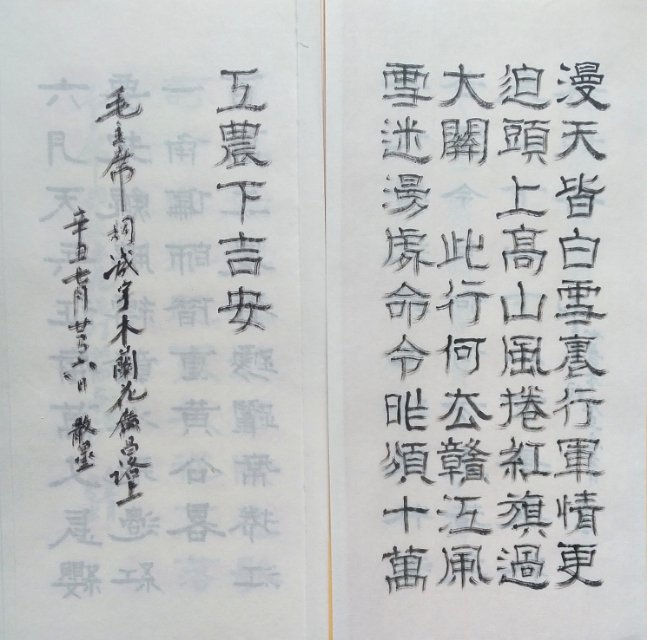 漫天皆白雪裏行軍情更
迫頭上高山風捲紅旗過
大關 此行何厺贛江風
雪迷漫處命令昨頒十萬
工農下吉安
毛主席詞減字木蘭花廣昌路上
辛丑七月廿六日 散墨